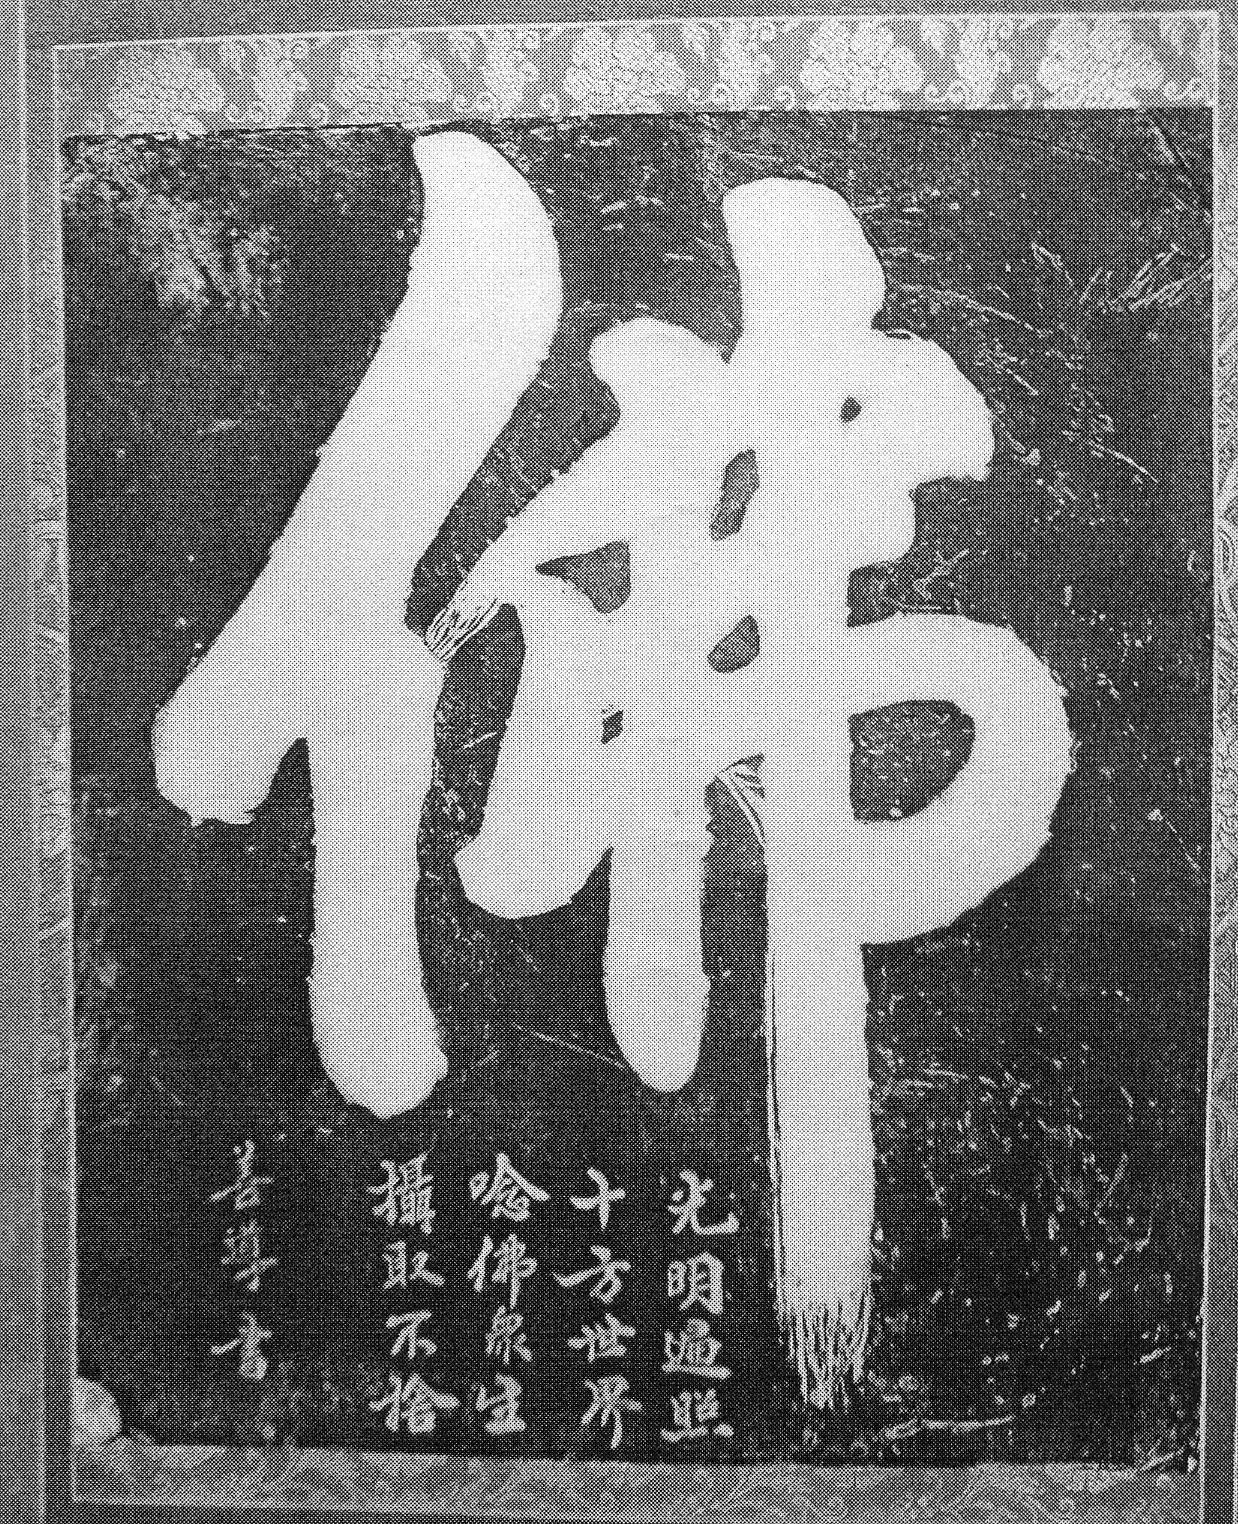 佛
光明遍照
十方世界
唸佛衆生
攝取不捨
善導書